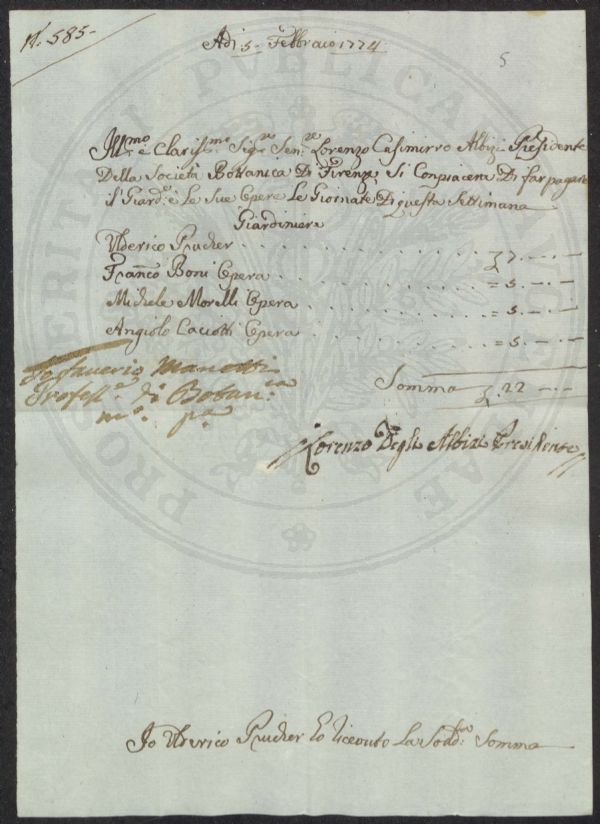 N. 585-
Adi 5- Febbraio 1774
5
Ill:mo e Clariss:mo Sig:re Sen:re Lorenzo Casimirro Albizi Presidente
Della Società Bottanica Di Firenze Si Conpiacera Di far pagare
il Giard:e e Le Sue Opere Le Giornate Di questa Settimana
Giardiniera
Uderico Prucker . . . . . . . . . . . £ 7. -. -
Franco Boni Opera . . . . . . . . . . = 5. -. -
Michele Morelli Opera . . . . . . . . . = 5. -. -
Angiolo Caciotti Opera . . . . . . . . . = 5. -. -
Somma £. 22 -. -
Io Saverio Manetti
Profess:e di Botan:ica
m:o p:a
Lorenzo Degli Albizi Presidente
Io Uderico Prucker ho riceuto La Sodd:a Somma
PROSPERITATI PUBLICAE